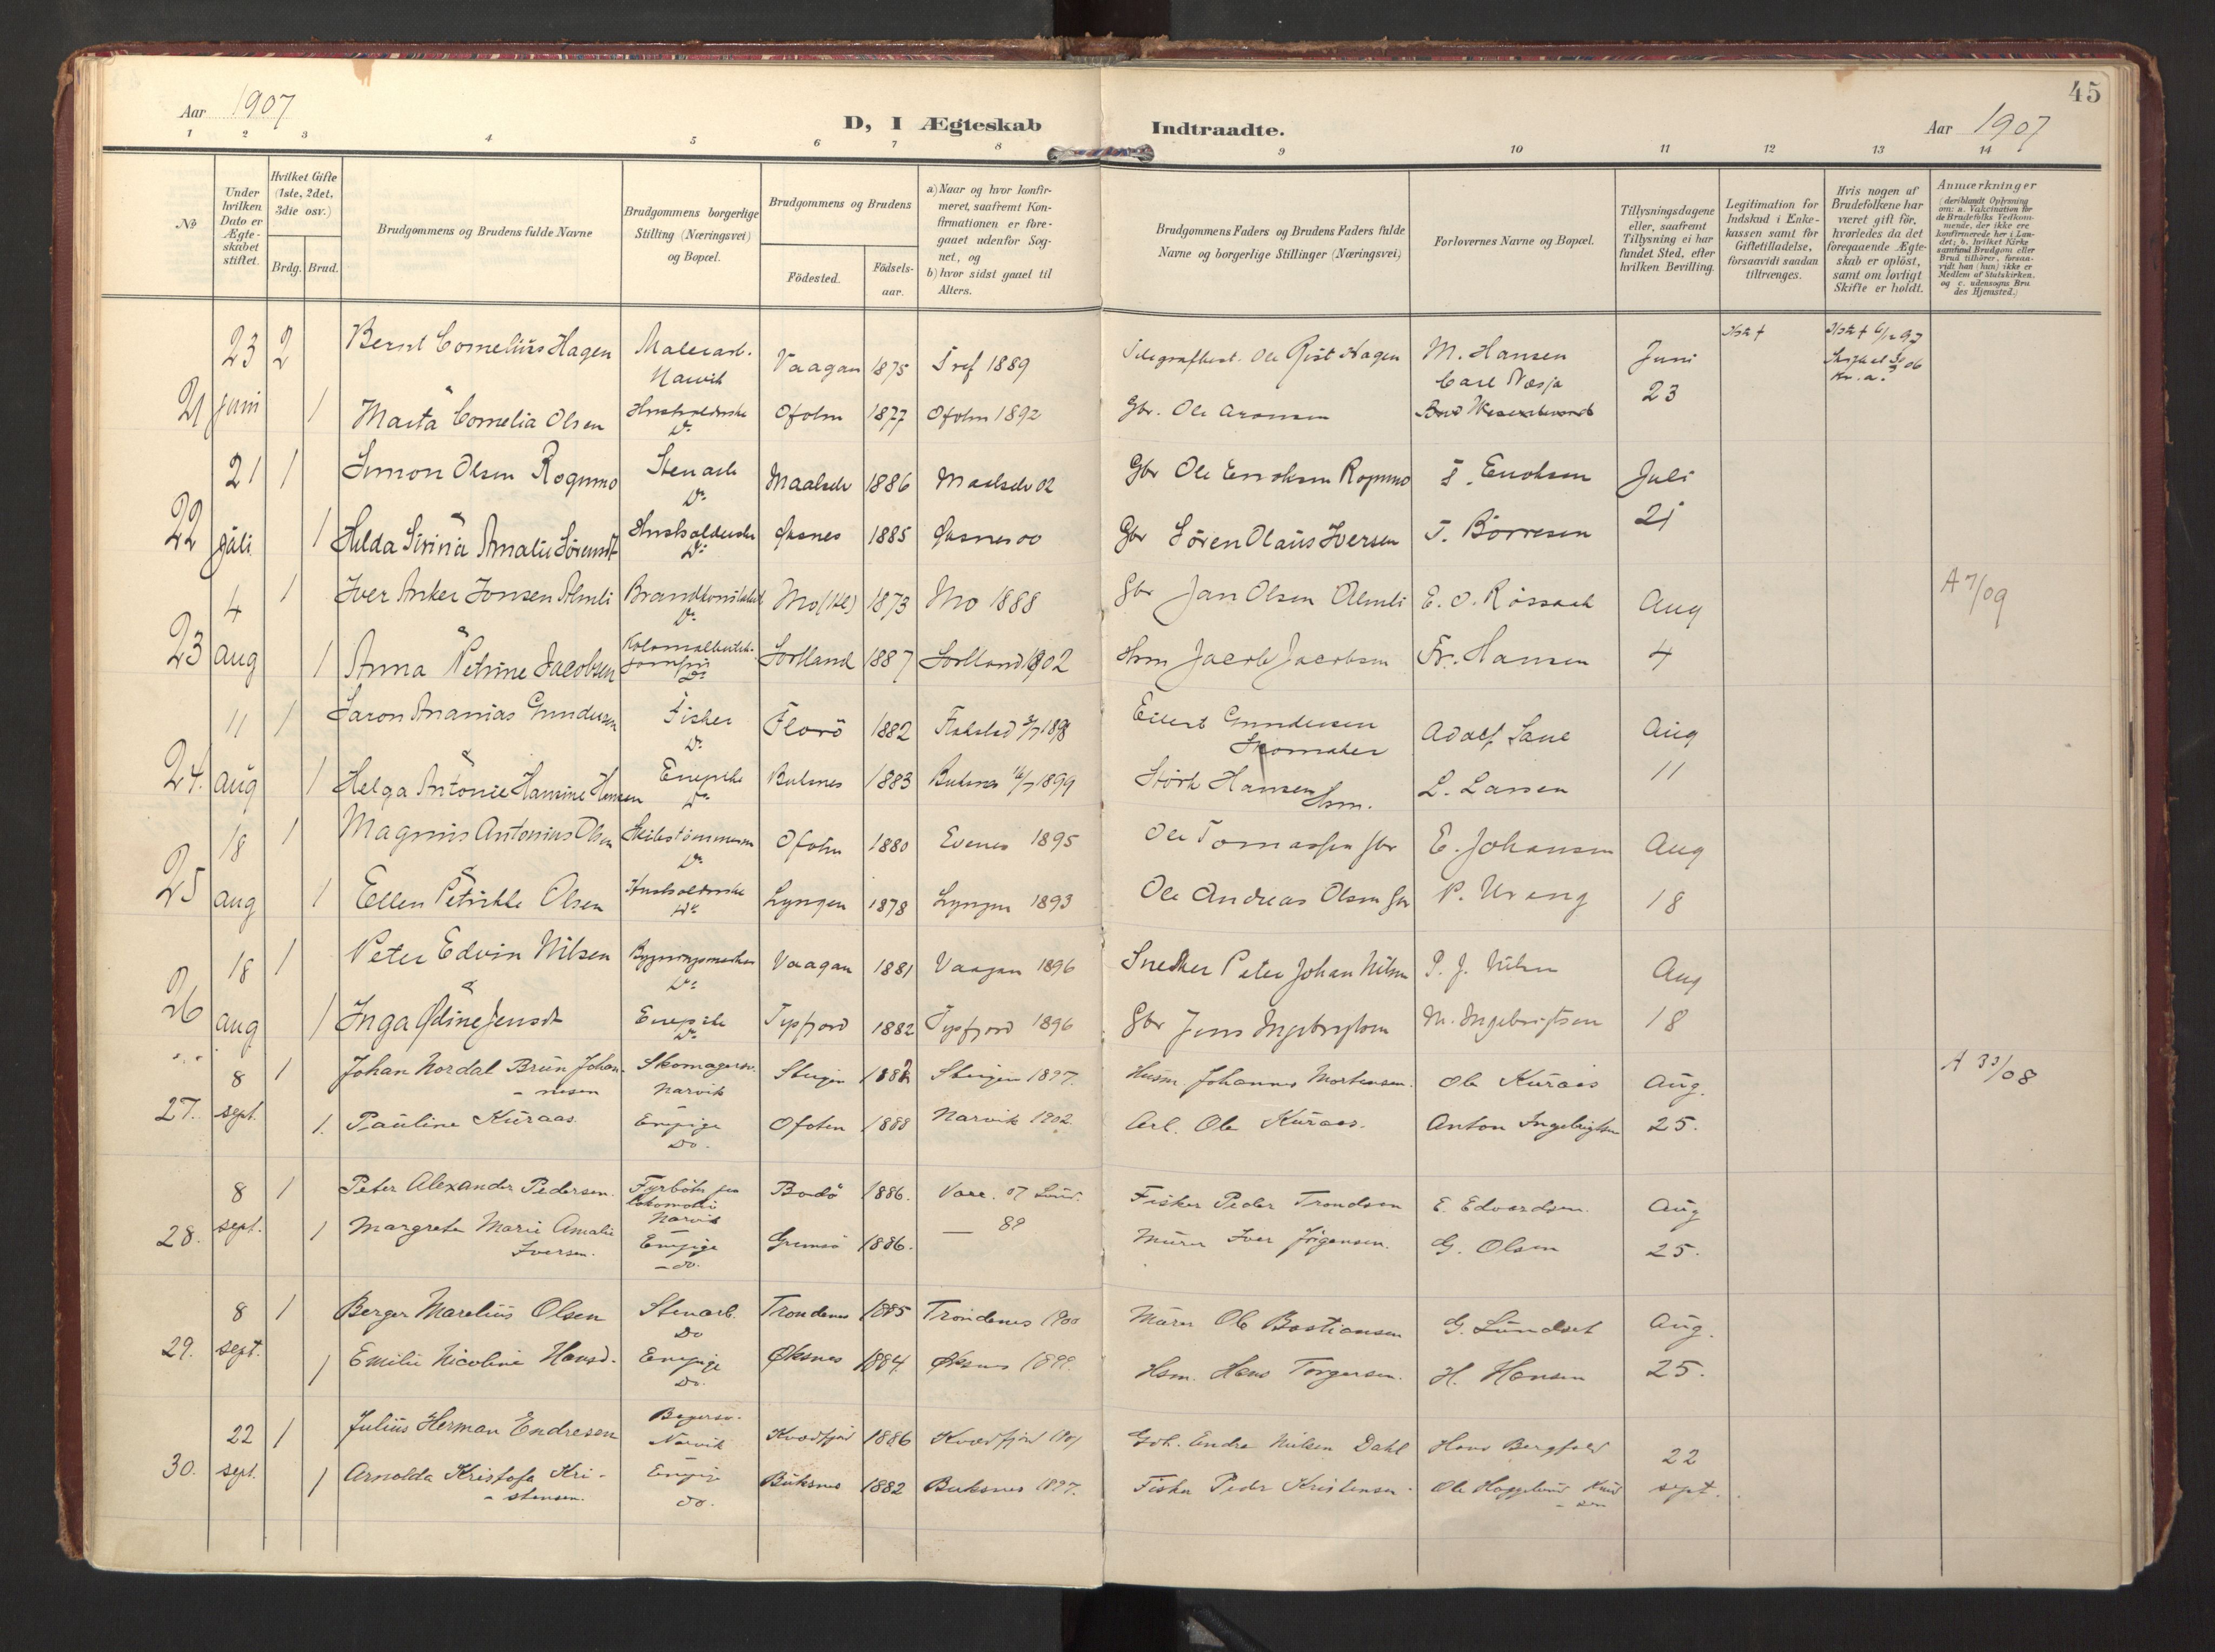 Aar 1907
D, I Ægteskab Indtraadte.
45
Aar 1907
1 2 3 4 5 6 7 8 9 10 11 12 13 14
No
Under hvilken Dato er Ægteskabet stiftet.
Hvilket Gifte (1ste, 2det, 3die osv.)
Brdg. Brud.
Brudgommens og Brudens fulde Navne
Brudgommens borgerlige Stilling (Næringsvei) og Bopæl.
Brudgommens og Brudens
Födested.
Födsels-aar.
a) Naar og hvor konfir-
meret, saafremt Kon-
firmationen er fore-
gaaet udenfor Sog-
net, og
b) hvor sidst gaaet til
Alters.
Brudgommens Faders og Brudens Faders fulde
Navne og borgerlige Stillinger (Næringsvei)
Forlovernes Navne og Bopæl.
Tillysningsdagene
eller, saafremt
Tillysning ei har
fundet Sted, efter
hvilken Bevilling.
Legitimation for
Indskud i Enke-
kassen samt for
Giftetilladelse,
forsaavidt saadan
tiltrænges.
Hvis nogen af
Brudefolkene har
været gift för,
hvorledes da det
foregaaende Ægte-
skab er oplöst,
samt om lovligt
Skifte er holdt.
Anmærkninger
(deriblandt Oplysning
om: a. Vakcination för
de Brudefolks Vedkom-
mende, der ikke ere
konfirmerede her i Lan-
det; b. hvilket Kirke
samfund Brudgom eller
Brud tilhörer, forsaa-
vidt han (hun) ikke er
Medlem af Statskirken,
og c. udensogns Bru
des Hjemsted.)
23 2 Bernt Cornelius Hagen Malerarb. Narvik Vaagan 1875 1889 Ole Rist Hagen M. Hansen Juni
Carl Næsja 23
21 juni 1 Marta Cornelia Olsen Do Ofoten 1877 Ofoten 1892 Gbr. Ole Aronsen
21 1 Simon Olsen Rognmo Stenarb Do Maalselv 1886 Maalselv 02 Gbr Ole Rognmo Enoksen Juli
22 juli 1 Hilda Sirina Amalie Sörensdt Husholderske Do Øksnes 1885 Øksnes 00 Gbr Sören Olaus Iversen T. Börresen 21
4 1 Iver Anker Jonsen Almli Brandkonstabel Do Mo 1873 Mo 1888 Gbr Jan Olsen Almli E. O. Rössaak Aug A 7/09
23 aug 1 Anna Petrine Jacobsen Do Sortland 1887 Sortland 1902 Hsm Jacob Jacobsen Fr. Hansen 4
11 1 Saron Ananias Gundersen Fisker Do Florö 1882 Flakstad 1898 Eilert Gundersen Skomaker Adolf Lane Aug
24. aug 1 Helga Antonie Hansine Hansen Enepike Do Buksnes 1883 Buksnes 1899 Störk Hansen Hsm. L. Larsen 11
18 1 Magnus Antonius Olsen Skibstömmerm Do Ofoten 1880 Evenes 1895 Ole Tomassen gbr E. Johansen Aug
25 aug 1 Ellen Petrikke Olsen Husholderske Do Lyngen 1878 Lyngen 1893 Ole Andreas Olsen gbr P. Wrang 18
18 1 Peter Edvin Nilsen Do Vaagan 1881 Vaagan 1896 Snedker Peter Johan Nilsen P. J. Nilsen Aug
26 aug 1 Inga Ødine Jensdt Enepike Do Tysfjord 1882 Tysfjord 1896 Gbr Jens Ingebrigtsen M. Ingebrigtsen 18
8 1 Johan Nordal Brun Johan- Skomagersv. Steigen 1882 Steigen 1897. Husm Johannes Mortensen. Ole Kuraas Aug. A 33/08
nesen Narvik
27. sept. 1. Pauline Kuraas. Enepige Do. Ofoten 1888 Narvik 1902. Arb. Ole Kuraas. Anton Ingebrigtsen 25.
8 1 Peter Alexander Pedersen. Fyrböter paa lokomotiv Narvik Bodö 1886. Fisker Peder Trondsen E. Edvardsen. Aug
28. sept. 1 Margrete Marie Amalie Iversen. Enepige do. Gimsö 1886. Murer Iver Jörgensen. G. Olsen 25.
8 1 Berger Marelius Olsen Stenarb. Do Trondenes 1885 Trondenes 1900 Murer Ole Bastiansen G. Lundset Aug.
29. sept. 1 Emilie Nicoline Hansd. Enepige Do. Øksnes 1884 Øksnes 1899. Hsm. Hans Torgersen. H. Hansen 25.
22 1 Julius Herman Endresen Bagersv. Narvik Kvædfjord 1886 Kvædfjord 1901 Endre Nilsen Dahl Hans Bergfald 22
30. sept. 1 Arnolda Kristofa Kri-stensen. Enepige do. Buksnes 1882 Buksnes 1897. Fisker Peder Kristensen. sept.